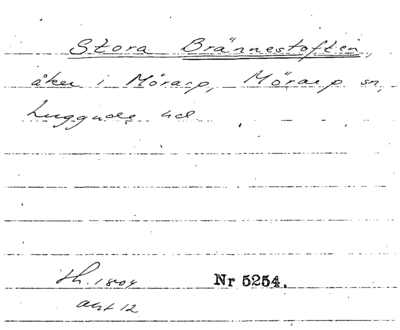 Stora Brännestoften,
åker i Mörarp, Mörarp sn,
Luggude hd
Sh. 1804 Nr 5254.
akt 12